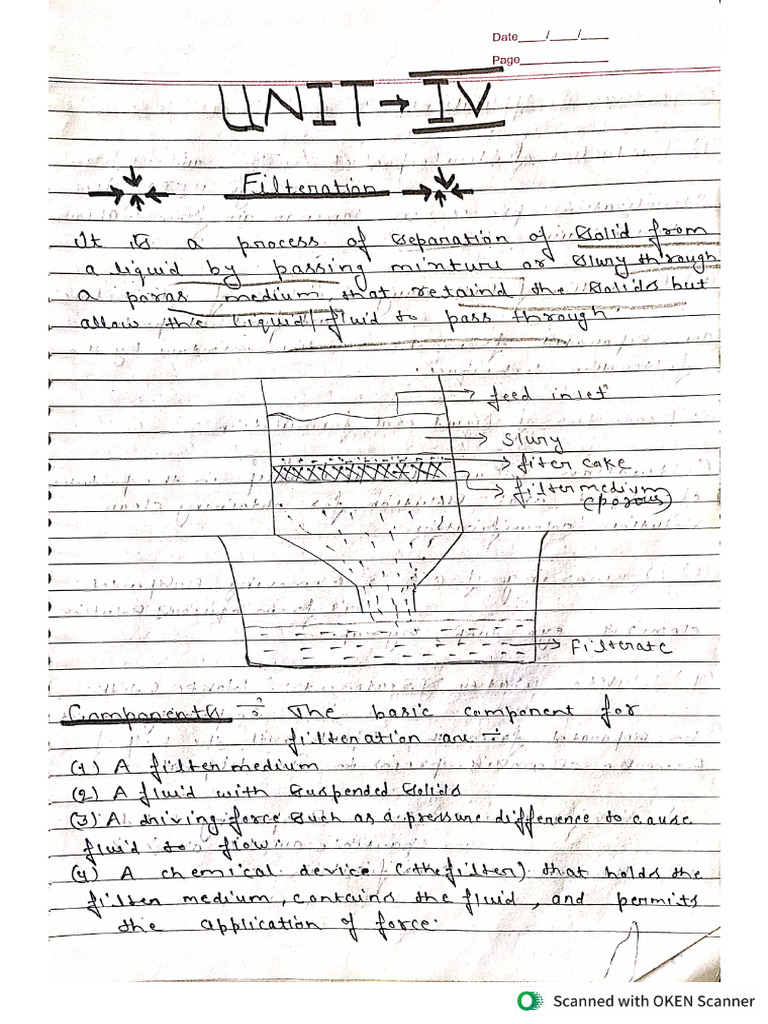 Date___/___/___
Page___________
UNIT → IV
Filteration
It is a process of separation of solid from
a liquid by passing minture or slury through
a poras medium, that retaind the solids but
allow the liquid/fluid to pass through.
feed inlet
slury
fiter cake
filter medium
(porous)
Filterate
Components :- The basic component for
filteration are :-
(1) A filter medium
(2) A fluid with suspended solids
(3) A driving force such as a pressure difference to cause
fluid to flow.
(4) A chemical device (the filter) that holds the
filter medium, contains the fluid, and permits
the application of force.
Scanned with OKEN Scanner